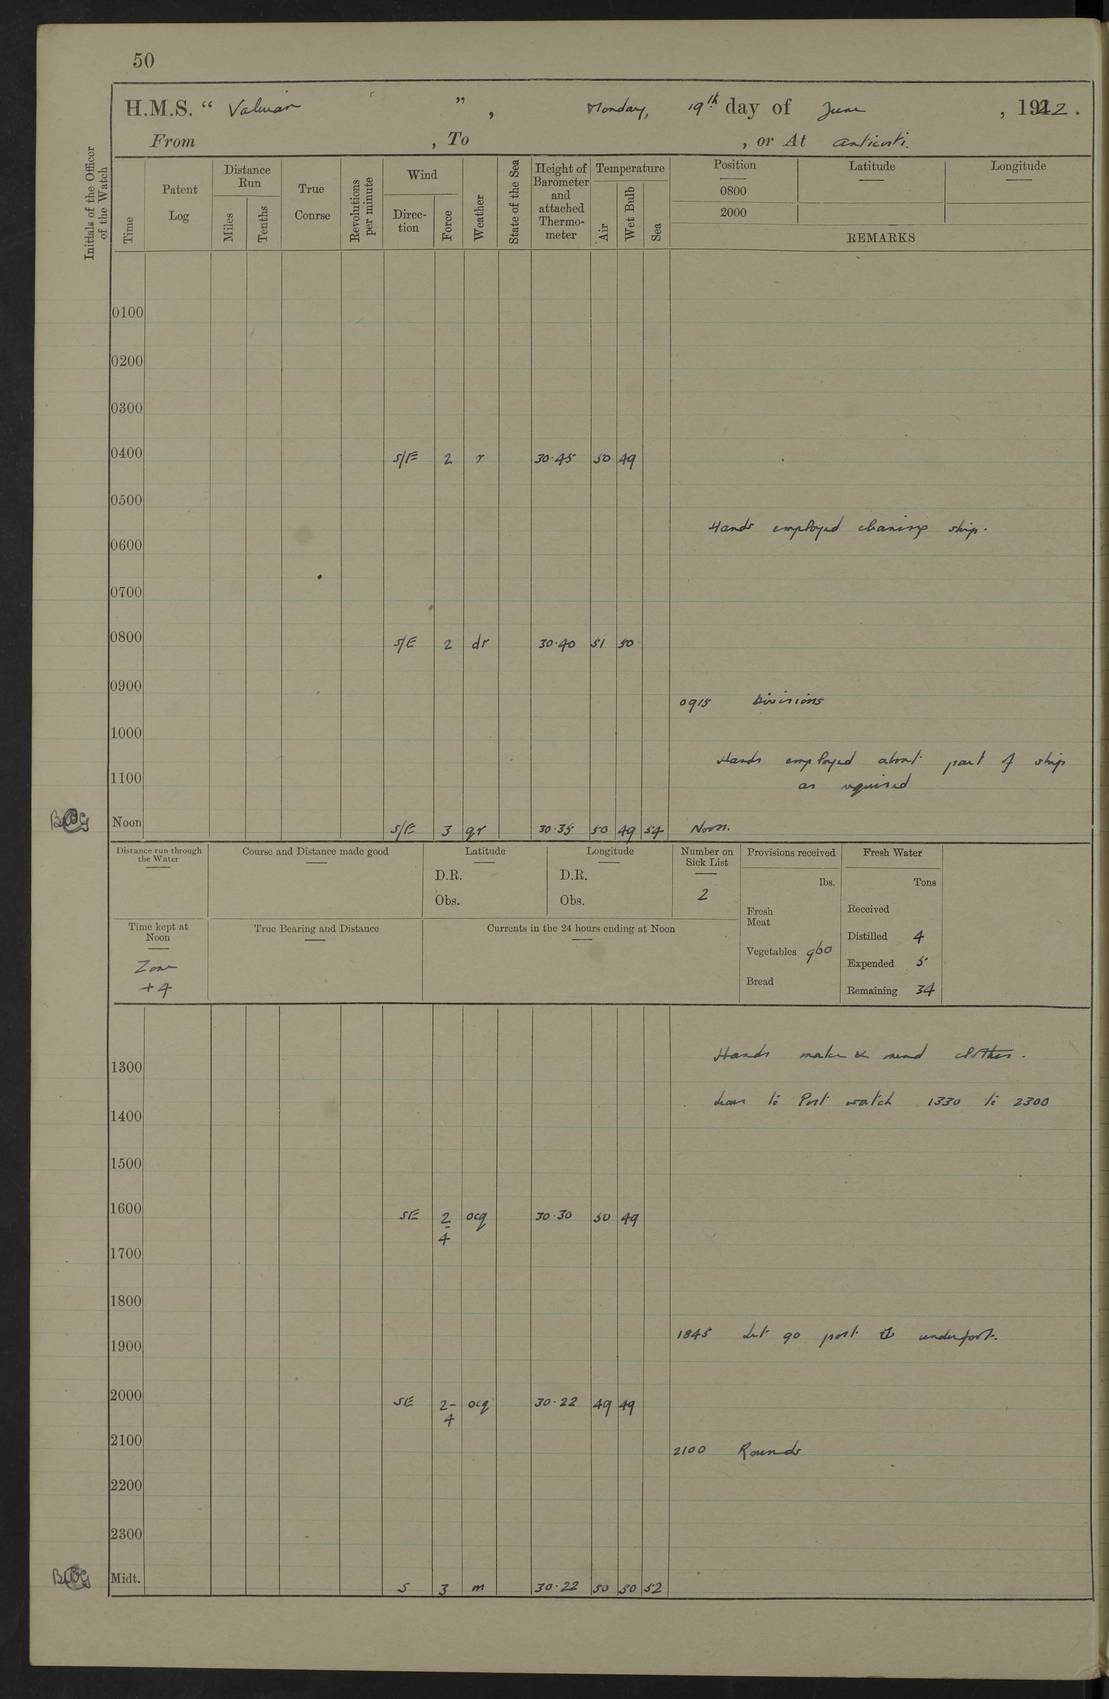 50
H.M.S. “ Valerian ”, Monday, 19th day of June , 1922.
From , To , or At Anticosti.
Initials of the Officer of the Watch
Time
Patent Log
Distance Run
Miles
Tenths
True Course
Revolutions per minute
Wind
Direc- tion
Force
Weather
State of the Sea
Height of Barometer and attached Thermo- meter
Temperature
Air
Wet Bulb
Sea
Position
Latitude
Longitude
0800
2000
REMARKS
0100
0200
0300
0400 S/E 2 r 30.45 50 49
0500
Hands employed cleaning ship.
0600
0700
0800 S/E 2 dr 30.40 51 50
0900
0915 Divisions
1000
Hands employed about part of ship
1100
as required
Noon S/E 3 gr 30.35 50 49 54 Noon.
Distance run through the Water
Course and Distance made good
Latitude
D.R.
Obs.
Longitude
D.R.
Obs.
Number on Sick List
2
Provisions received
lbs.
Fresh Meat
Vegetables 960
Bread
Fresh Water
Tons
Received
Distilled 4
Expended 5
Remaining 34
Time kept at Noon
Zone
+4
True Bearing and Distance
Currents in the 24 hours ending at Noon
Hands make & mend clothes.
1300
Leave to Port watch 1330 to 2300
1400
1500
1600 SE 2-4 ocq 30.30 50 49
1700
1800
1845 Let go port ⚓ underfoot.
1900
2000 SE 2-4 ocq 30.22 49 49
2100
2100 Rounds
2200
2300
Midt. S 3 m 30.22 50 50 52